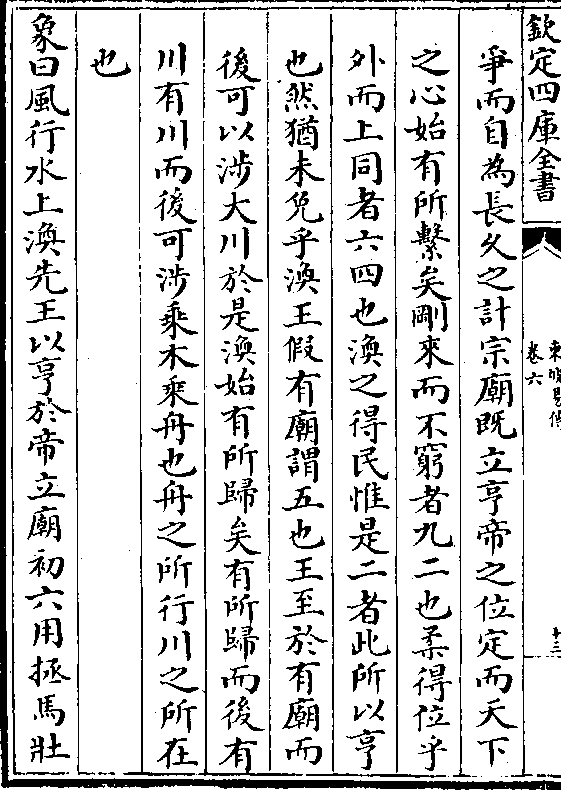 欽定四庫全書
東坡易傳
卷六
十三
爭而自為長久之計宗廟既立亨帝之位定而天下
之心始有所繫矣剛來而不窮者九二也柔得位乎
外而上同者六四也渙之得民惟是二者此所以亨
也然猶未免乎渙王假有廟謂五也王至於有廟而
後可以涉大川於是渙始有所歸矣有所歸而後有
川有川而後可涉乘木乘舟也舟之所行川之所在
也
象曰風行水上渙先王以亨於帝立廟初六用拯馬壯